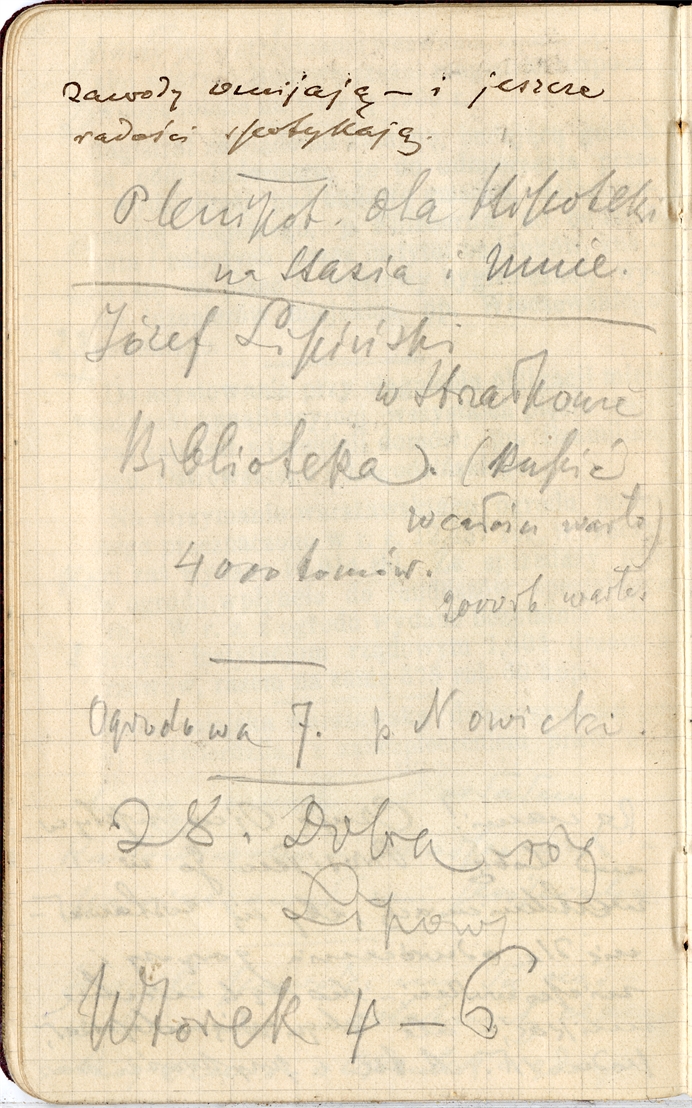 zawody omijają – i jeszcze
radości spotykają.
Plenipot. dla Hipoteki
na Stasia i mnie.
Józef Lipiński
w Strażkowie
Biblioteka). (kupić
w całości warto)
4000 tomów.
warto
Ogrodowa 7. p. Nowicki.
28. Dobra róg
Lipowej
Wtorek 4 – 6